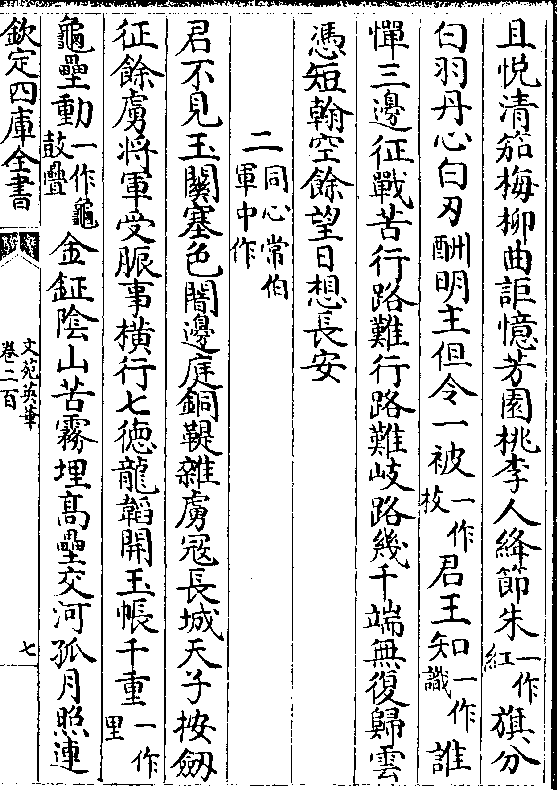 且悦清笳梅柳曲詎憶芳園桃李人絳節朱一作紅旗分
白羽丹心白刃酬明主但令一被一作枝君王知一作識誰
憚三邊征戰苦行路難行路難岐路幾千端無復歸雲
憑短翰空餘望日想長安
二同心常伯軍中作
君不見玉關塞色闇邊庭銅鞮雜虜冦長城天子按劔
征餘虜將軍受脤事横行七徳龍韜開玉帳千重一作里
龜壘動一作龜鼓疊金鉦陰山苦霧埋髙壘交河孤月照連
欽定四庫全書
文苑英華
卷二百
七